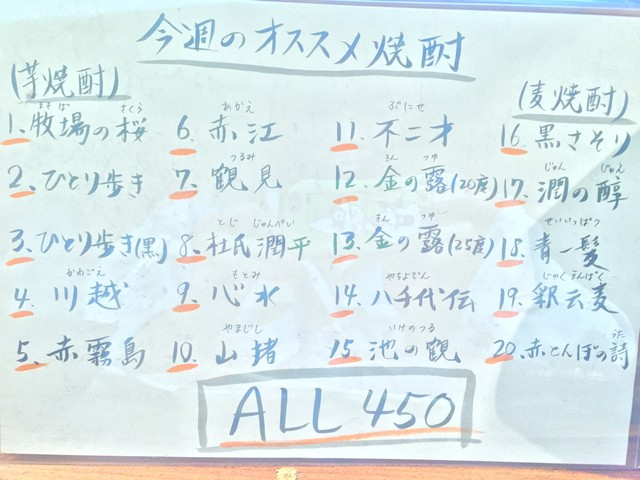 今週のオススメ焼酎
(芋焼酎)
まきば さくら
1、牧場の桜
2、ひとり歩き
3、ひとり歩き(黒)
かわごえ
4、川越
5、赤霧島
あかえ
6、赤江
つるみ
7、観見
とじ じゅんぺい
8、杜氏潤平
もとみ
9、心水
やまじし
10、山猪
ぶにせ
11、不二才
きん つゆ
12、金の露(20度)
きん つゆ
13、金の露(25度)
やちよでん
14、八千代伝
いけのつる
15、池の観
(麦焼酎)
16、黒さそり
じゅん じゅん
17、潤の醇
せいいっぱつ
18、青一髪
じゃくうんばく
19、釈云麦
うた
20、赤とんぼの詩
ALL 450